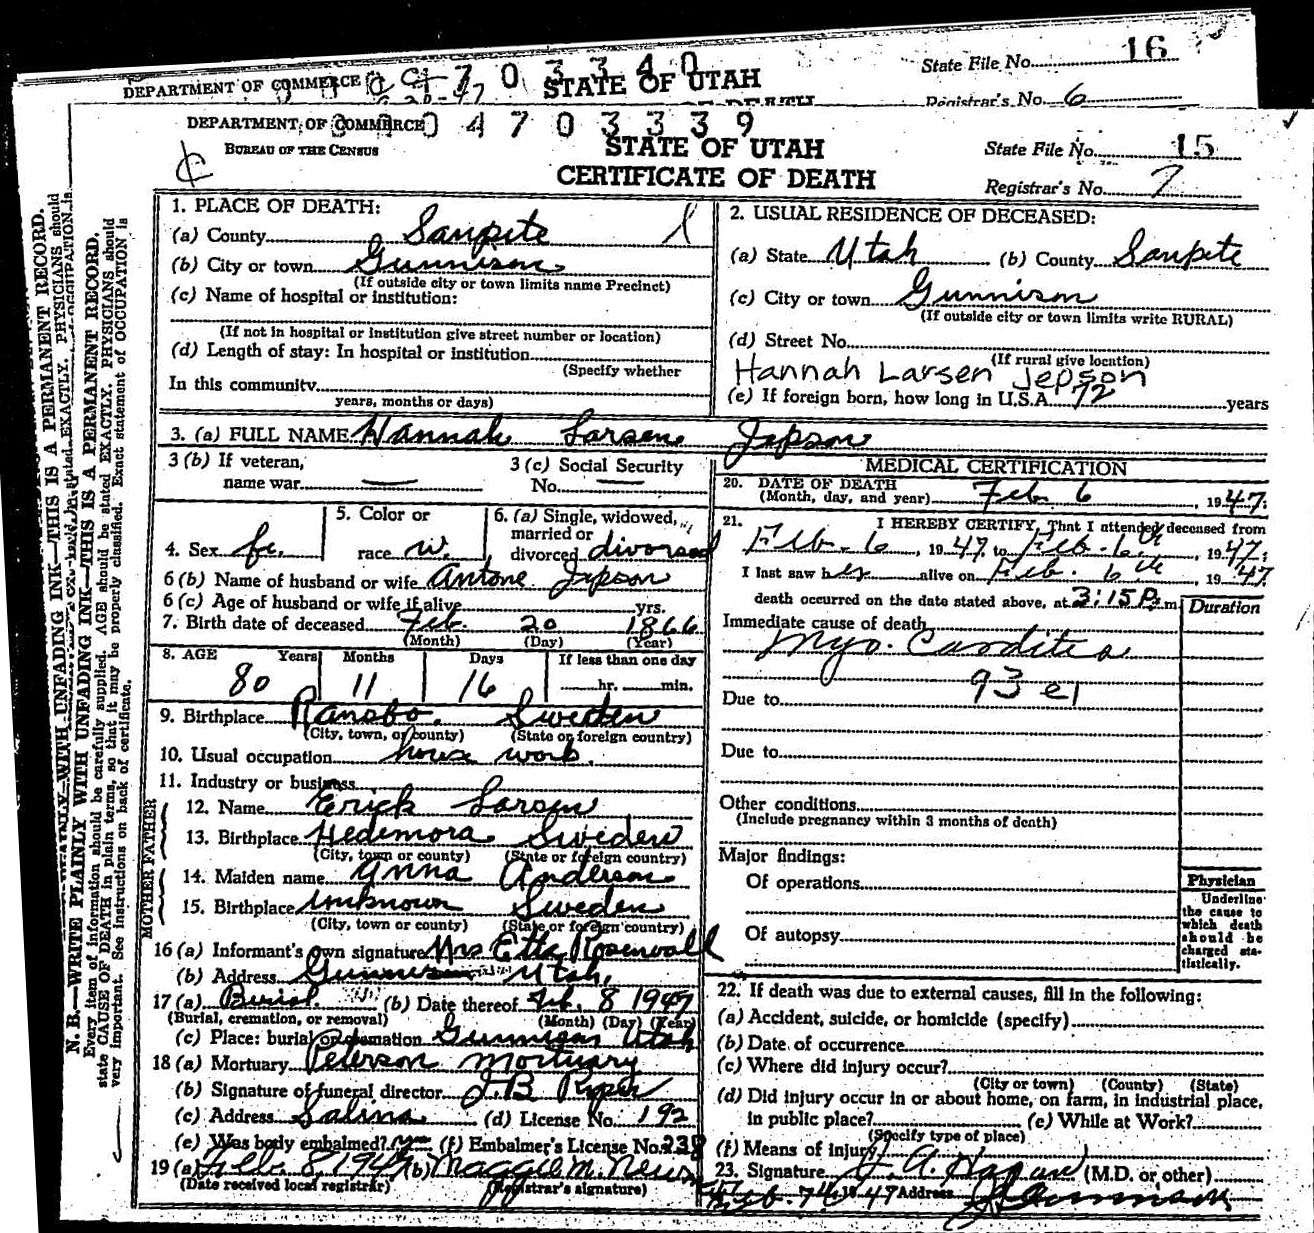 16
State File No.
DEPARTMENT OF COMMERCE
703340
STATE OF UTAH
Registrar's No. 6
DEPARTMENT OF COMMERCE
4703339
BUREAU OF THE CENSUS
STATE OF UTAH
CERTIFICATE OF DEATH
State File No. 15
Registrar's No. 7
N. B.—WRITE PLAINLY WITH UNFADING INK—THIS IS A PERMANENT RECORD.
Every item of information should be carefully supplied. AGE should be stated EXACTLY. PHYSICIANS should
state CAUSE OF DEATH in plain terms, so that it may be properly classified. Exact statement of OCCUPATION is
very important. See instructions on back of certificate.
1. PLACE OF DEATH:
(a) County Sanpete
(b) City or town Gunnison
(If outside city or town limits name Precinct)
(c) Name of hospital or institution:
(If not in hospital or institution give street number or location)
(d) Length of stay: In hospital or institution
(Specify whether
In this community
years, months or days)
2. USUAL RESIDENCE OF DECEASED:
(a) State Utah (b) County Sanpete
(c) City or town Gunnison
(If outside city or town limits write RURAL)
(d) Street No.
(If rural give location)
Hannah Larsen Jepson
(e) If foreign born, how long in U.S.A. 72 years
3. (a) FULL NAME Hannah Larsen Jepson
3 (b) If veteran, name war —
3 (c) Social Security No. —
4. Sex fe.
5. Color or race w.
6. (a) Single, widowed, married or divorced divorsed
6 (b) Name of husband or wife Antone Jepson
6 (c) Age of husband or wife if alive yrs.
7. Birth date of deceased Feb. 20 1866
(Month) (Day) (Year)
8. AGE Years Months Days If less than one day
80 11 16 hr. min.
9. Birthplace Ransbo. Sweden
(City, town, or county) (State or foreign country)
10. Usual occupation house work.
11. Industry or business
FATHER
12. Name Erick Larsen
13. Birthplace Hedemora Sweden
(City, town or county) (State or foreign country)
MOTHER
14. Maiden name Anna Anderson
15. Birthplace Unknown Sweden
(City, town or county) (State or foreign country)
16 (a) Informant's own signature Mrs Etta Rosenvall
(b) Address Gunnison Utah,
17 (a) Burial (b) Date thereof Feb. 8 1947
(Burial, cremation, or removal) (Month) (Day) (Year)
(c) Place: burial or cremation Gunnison Utah
18 (a) Mortuary Peterson Mortuary
(b) Signature of funeral director J.B
(c) Address Salina (d) License No. 192
(e) Was body embalmed? yes (f) Embalmer's License No. 238
19 (a) Feb. 8, 1947 (b) Maggie M.
(Date received local registrar) (Registrar's signature)
MEDICAL CERTIFICATION
20. DATE OF DEATH
(Month, day, and year) Feb. 6 1947.
21. I HEREBY CERTIFY, That I attended deceased from
Feb. 6, 1947 to Feb. 6th, 1947;
I last saw her alive on Feb. 6th, 1947
death occurred on the date stated above, at 3:15 P. m.
Duration
Immediate cause of death
Myo. Carditis
93 e1
Due to
Due to
Other conditions
(Include pregnancy within 3 months of death)
Major findings:
Of operations
Of autopsy
Physician
Underline
the cause to
which death
should be
charged sta-
tistically.
22. If death was due to external causes, fill in the following:
(a) Accident, suicide, or homicide (specify)
(b) Date of occurrence
(c) Where did injury occur?
(City or town) (County) (State)
(d) Did injury occur in or about home, on farm, in industrial place,
in public place? (e) While at Work?
(Specify type of place)
(f) Means of injury
23. Signature J. A. Hagan (M.D. or other)
Feb. 7th 1947 Address